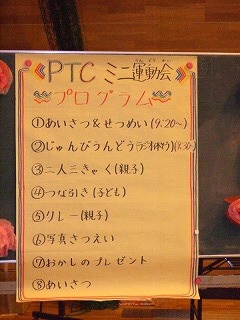 PTC ミニ運動会
プログラム
①あいさつ&せつめい(9:20~)
②じゅんびうんどう(ラジオ体そう)(9:30~)
③二人三きゃく(親子)
④つな引き(子ども)
⑤リレー(親子)
⑥写真さつえい
⑦おかしのプレゼント
⑧あいさつ